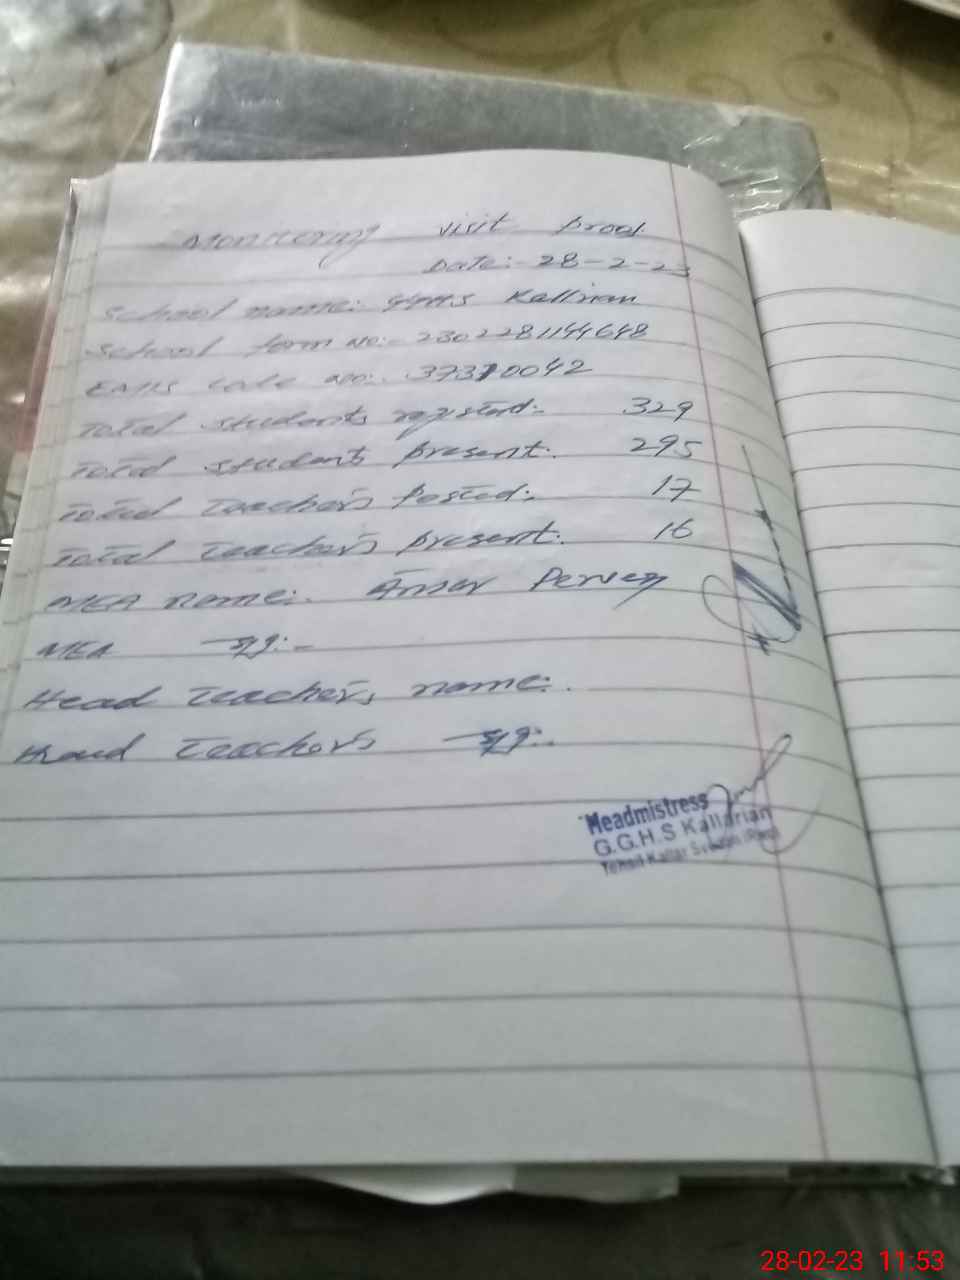 Monitoring visit proof
Date:- 28-2-23
School name: GGHS Kallrian
School form No:- 2302281144648
EMIS code no:. 37310042
Total students registerd:- 329
Total students present:. 295
Total Teachers Posted:- 17
Total Teachers present:. 16
MEA name:. Ansar Pervez
MEA sig:-
Head Teacher's name:.
Head Teachers sig:-
Headmistress
G.G.H.S Kallarian
Tehsil Kallar Syedan (Rwp)
28-02-23 11:53